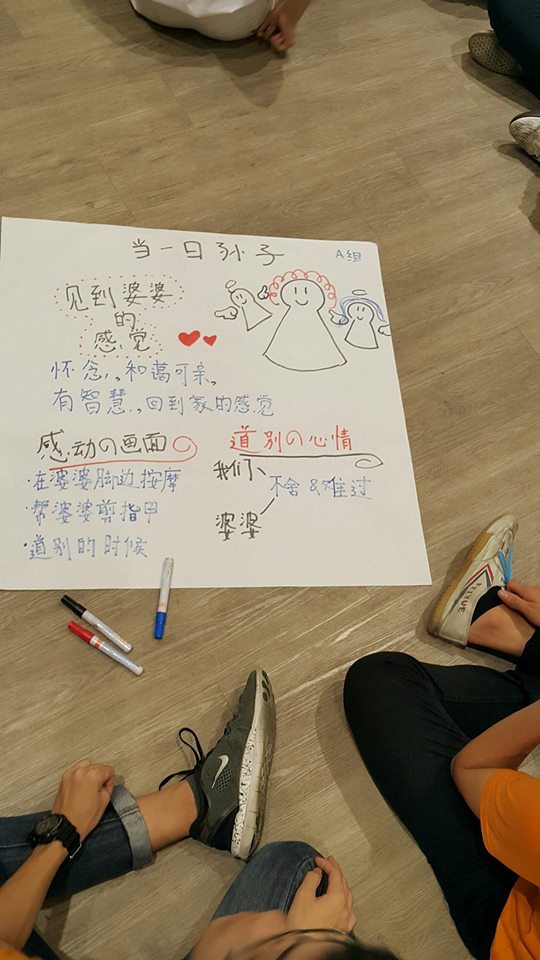 当一日孙子
A组
见到婆婆
的
感觉
怀念,。和蔼可亲。
有智慧,。回到家的感觉
感动の画面
·在婆婆脚边按摩
·帮婆婆剪指甲
·道别的时候
道别の心情
我们、
不舍&难过
婆婆
FEIYUE